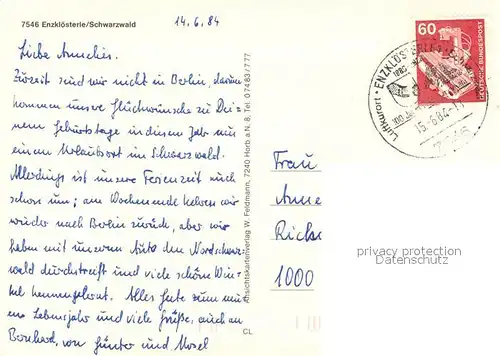 7546 Enzklösterle/Schwarzwald
14.6.84
Liebe Annelies.
Zurzeit sind wir nicht in Berlin, darum
kommen unsere Glückwünsche zu Dei-
nem Geburtstage in diesem Jahr aus
einem Urlaubsort im Schwarzwald.
Allerdings ist unsere Ferienzeit auch
schon um; am Wochenende kehren wir
wieder nach Berlin zurück, aber wir
haben mit unserem Auto den Nordschwarz-
wald durchstreift und viele schöne Win-
kel kennengelernt. Alles Gute zum neu-
en Lebensjahr und viele Grüße, auch an
Bernhard, von Günter und
Ansichtskartenverlag W. Feldmann, 7240 Horb a. N. 8, Tel. 07483/777
CL
60
DEUTSCHE BUNDESPOST
Luftkurort · ENZKLÖSTERLE
15.-6.84
7546
Frau
Anne
Richt
1000
privacy protection
Datenschutz